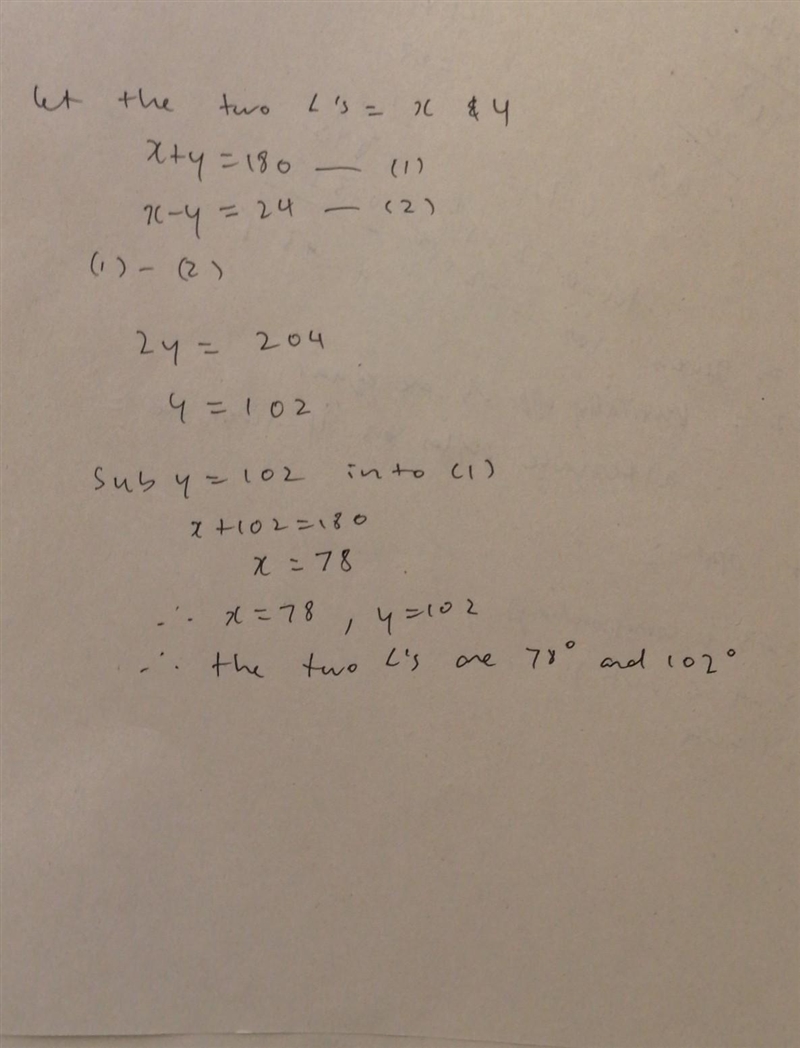 let the two ∠'s = x & y
x+y=180 — (1)
x-y = 24 — (2)
(1) - (2)
2y = 204
y = 102
Sub y = 102 into (1)
x+102=180
x = 78
∴ x=78, y=102
∴ the two ∠'s are 78° and 102°